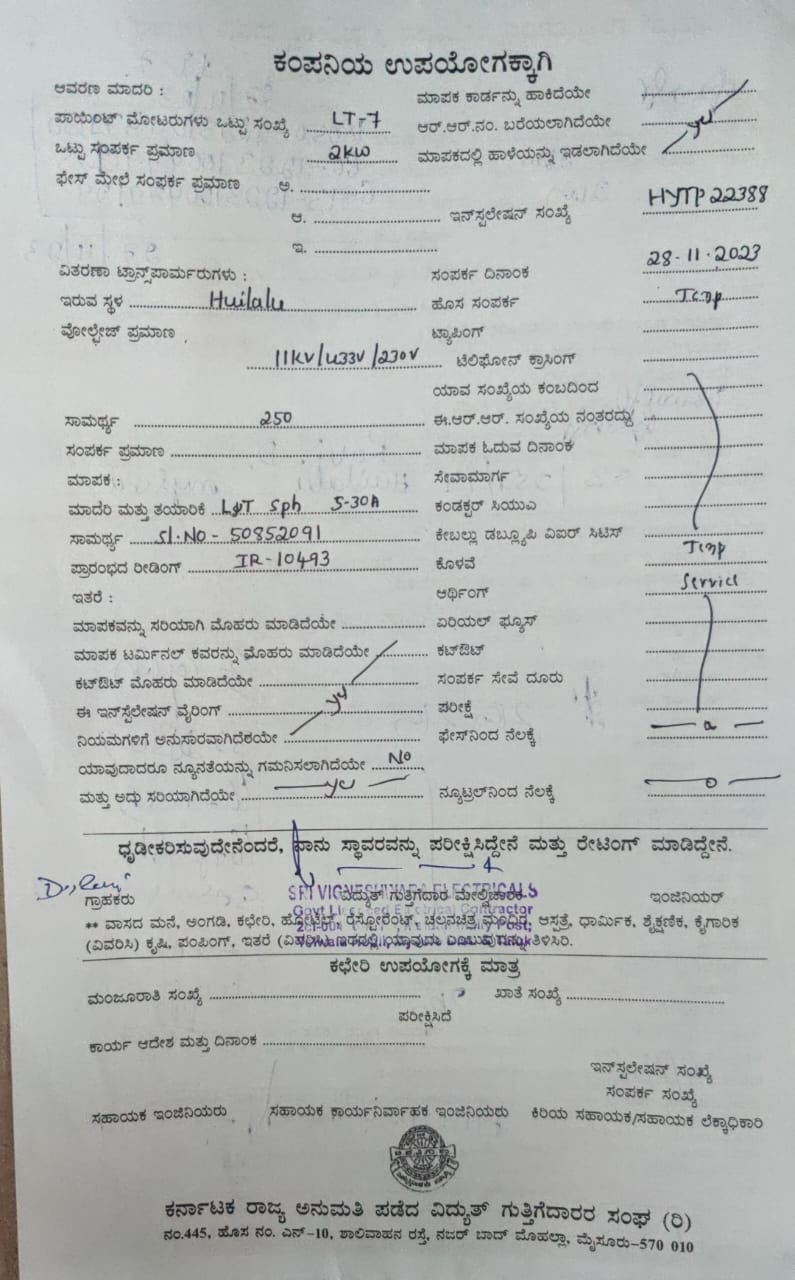 ಕಂಪನಿಯ ಉಪಯೋಗಕ್ಕಾಗಿ
ಆವರಣ ಮಾದರಿ : ಮಾಪಕ ಕಾರ್ಡನ್ನು ಹಾಕಿದೆಯೇ
ಪಾಯಿಂಟ್ ಮೋಟರುಗಳು ಒಟ್ಟು ಸಂಖ್ಯೆ LT-7 ಆರ್.ಆರ್.ನಂ. ಬರೆಯಲಾಗಿದೆಯೇ
ಒಟ್ಟು ಸಂಪರ್ಕ ಪ್ರಮಾಣ 2KW ಮಾಪಕದಲ್ಲಿ ಹಾಳೆಯನ್ನು ಇಡಲಾಗಿದೆಯೇ
ಫೇಸ್ ಮೇಲೆ ಸಂಪರ್ಕ ಪ್ರಮಾಣ ಅ.
ಆ. ಇನ್‌ಸ್ಟಲೇಷನ್ ಸಂಖ್ಯೆ HYTP 22388
ಇ.
ವಿತರಣಾ ಟ್ರಾನ್ಸ್‌ಪಾರ್ಮರುಗಳು : ಸಂಪರ್ಕ ದಿನಾಂಕ 28-11-2023
ಇರುವ ಸ್ಥಳ Huilalu ಹೊಸ ಸಂಪರ್ಕ Temp
ವೋಲ್ಟೇಜ್ ಪ್ರಮಾಣ ಟ್ಯಾಪಿಂಗ್
11KV/433V/230V ಟೆಲಿಫೋನ್ ಕ್ರಾಸಿಂಗ್
ಯಾವ ಸಂಖ್ಯೆಯ ಕಂಬದಿಂದ
ಸಾಮರ್ಥ್ಯ 250 ಈ.ಆರ್.ಆರ್. ಸಂಖ್ಯೆಯ ನಂತರದ್ದು
ಸಂಪರ್ಕ ಪ್ರಮಾಣ ಮಾಪಕ ಓದುವ ದಿನಾಂಕ
ಮಾಪಕ : ಸೇವಾಮಾರ್ಗ
ಮಾದರಿ ಮತ್ತು ತಯಾರಿಕೆ L&T Sph 5-30A ಕಂಡಕ್ಟರ್ ಸಿಯುಎ
ಸಾಮರ್ಥ್ಯ Sl.No - 50852091 ಕೇಬಲ್ಲು ಡಬ್ಲ್ಯೂಪಿ ವಿಐರ್ ಸಿಟಿಸ್
ಪ್ರಾರಂಭದ ರೀಡಿಂಗ್ IR-10493 ಕೊಳವೆ Temp
ಇತರೆ : ಆರ್ಥಿಂಗ್ Service
ಮಾಪಕವನ್ನು ಸರಿಯಾಗಿ ಮೊಹರು ಮಾಡಿದೆಯೇ ಏರಿಯಲ್ ಫ್ಯೂಸ್
ಮಾಪಕ ಟರ್ಮಿನಲ್ ಕವರನ್ನು ಮೊಹರು ಮಾಡಿದೆಯೇ ಕಟ್‌ಔಟ್
ಕಟ್‌ಔಟ್ ಮೊಹರು ಮಾಡಿದೆಯೇ ಸಂಪರ್ಕ ಸೇವೆ ದೂರು
ಈ ಇನ್‌ಸ್ಟಲೇಷನ್ ವೈರಿಂಗ್ ಪರೀಕ್ಷೆ
ನಿಯಮಗಳಿಗೆ ಅನುಸಾರವಾಗಿದೆಯೇ ಫೇಸ್‌ನಿಂದ ನೆಲಕ್ಕೆ
ಯಾವುದಾದರೂ ನ್ಯೂನತೆಯನ್ನು ಗಮನಿಸಲಾಗಿದೆಯೇ No
ಮತ್ತು ಅದು ಸರಿಯಾಗಿದೆಯೇ yes ನ್ಯೂಟ್ರಲ್‌ನಿಂದ ನೆಲಕ್ಕೆ
ಧೃಡೀಕರಿಸುವುದೇನೆಂದರೆ, ನಾನು ಸ್ಥಾವರವನ್ನು ಪರೀಕ್ಷಿಸಿದ್ದೇನೆ ಮತ್ತು ರೇಟಿಂಗ್ ಮಾಡಿದ್ದೇನೆ.
SRI VIGNESHWARA ELECTRICALS
ಗ್ರಾಹಕರು ವಿದ್ಯುತ್ ಗುತ್ತಿಗೆದಾರ ಮೇಲ್ವಿಚಾರಕ ಇಂಜಿನಿಯರ್
Govt Licensed Electrical Contractor
** ವಾಸದ ಮನೆ, ಅಂಗಡಿ, ಕಛೇರಿ, ಹೋಟೆಲ್, ರೆಸ್ಟೋರೆಂಟ್, ಚಲನಚಿತ್ರ ಮಂದಿರ, ಆಸ್ಪತ್ರೆ, ಧಾರ್ಮಿಕ, ಶೈಕ್ಷಣಿಕ, ಕೈಗಾರಿಕ
(ವಿವರಿಸಿ) ಕೃಷಿ, ಪಂಪಿಂಗ್, ಇತರೆ (ವಿವರಿಸಿ) ಇದರಲ್ಲಿ ಯಾವುದು ಎಂಬುವುದನ್ನು ತಿಳಿಸಿರಿ.
ಕಛೇರಿ ಉಪಯೋಗಕ್ಕೆ ಮಾತ್ರ
ಮಂಜೂರಾತಿ ಸಂಖ್ಯೆ ಖಾತೆ ಸಂಖ್ಯೆ
ಪರೀಕ್ಷಿಸಿದೆ
ಕಾರ್ಯ ಆದೇಶ ಮತ್ತು ದಿನಾಂಕ
ಇನ್‌ಸ್ಟಲೇಷನ್ ಸಂಖ್ಯೆ
ಸಂಪರ್ಕ ಸಂಖ್ಯೆ
ಸಹಾಯಕ ಇಂಜಿನಿಯರು ಸಹಾಯಕ ಕಾರ್ಯನಿರ್ವಾಹಕ ಇಂಜಿನಿಯರು ಕಿರಿಯ ಸಹಾಯಕ/ಸಹಾಯಕ ಲೆಕ್ಕಾಧಿಕಾರಿ
ಕರ್ನಾಟಕ ರಾಜ್ಯ ಅನುಮತಿ ಪಡೆದ ವಿದ್ಯುತ್ ಗುತ್ತಿಗೆದಾರರ ಸಂಘ (ರಿ)
ನಂ.445, ಹೊಸ ನಂ. ಎನ್-10, ಶಾಲಿವಾಹನ ರಸ್ತೆ, ನಜರ್ ಬಾದ್ ಮೊಹಲ್ಲಾ, ಮೈಸೂರು-570 010